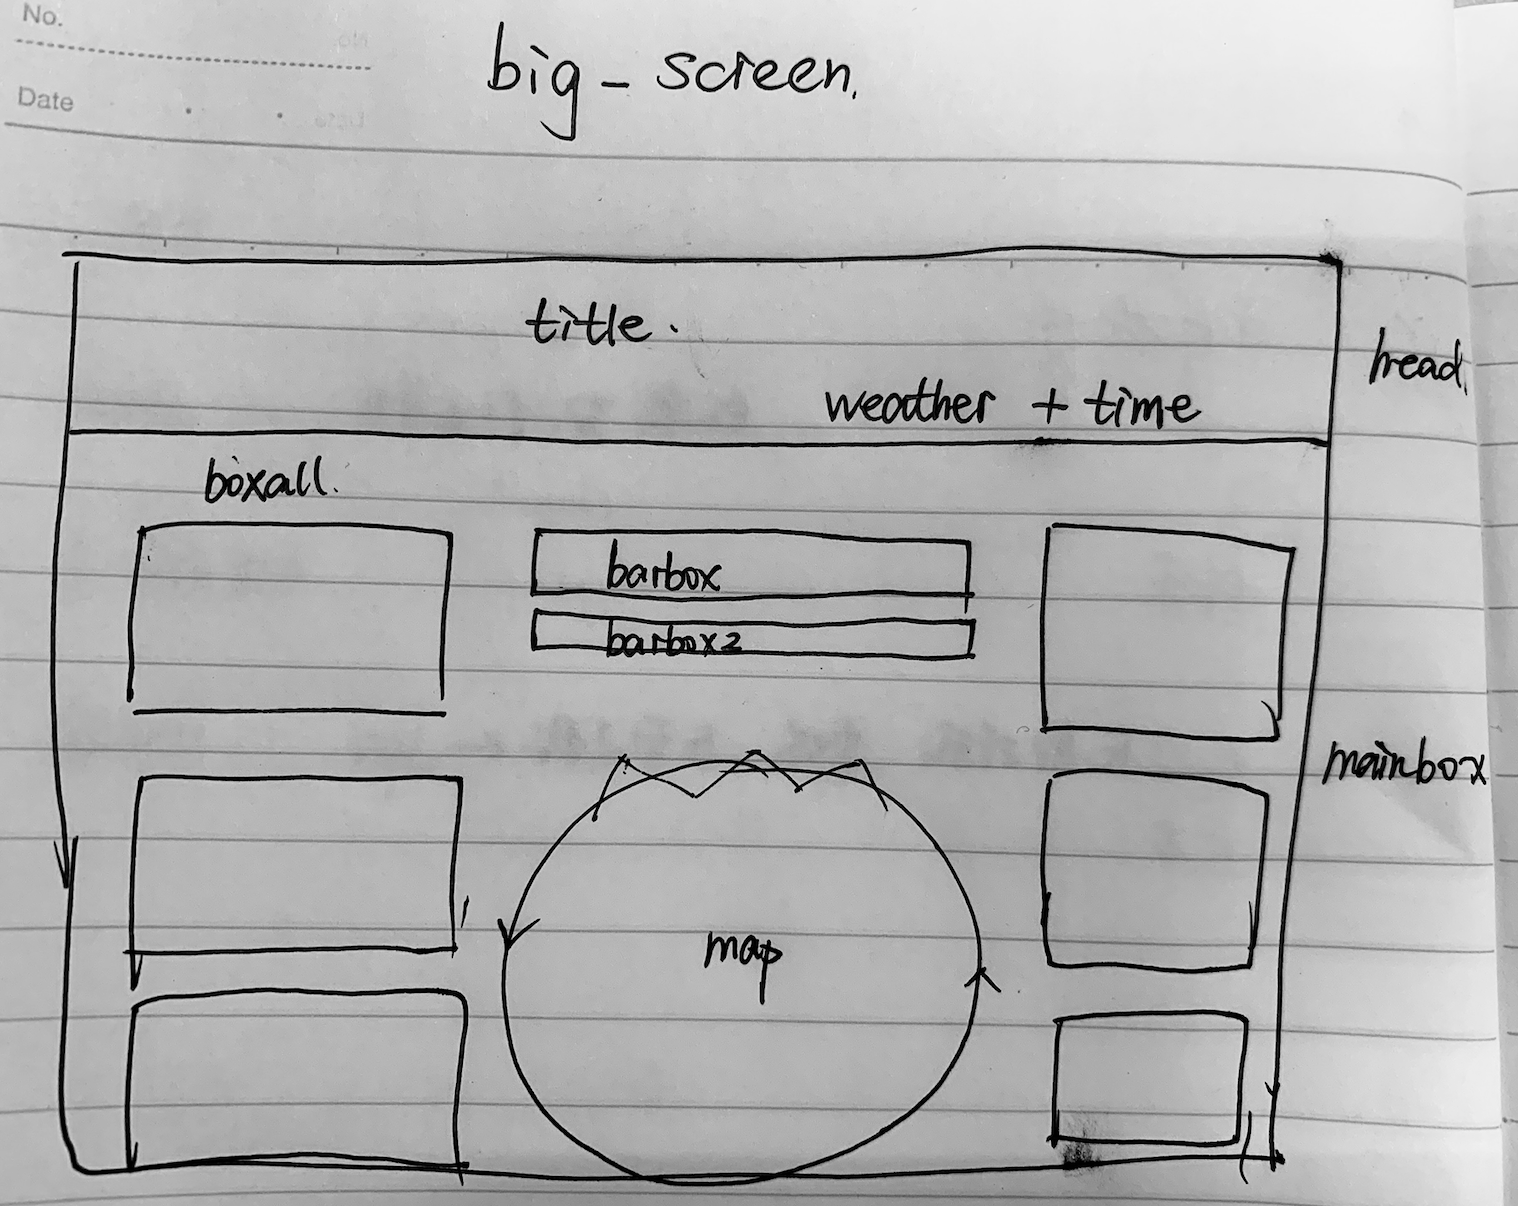 No.
Date
big - screen.
title.
head.
weather + time
boxall.
barbox
barbox2
mainbox
map